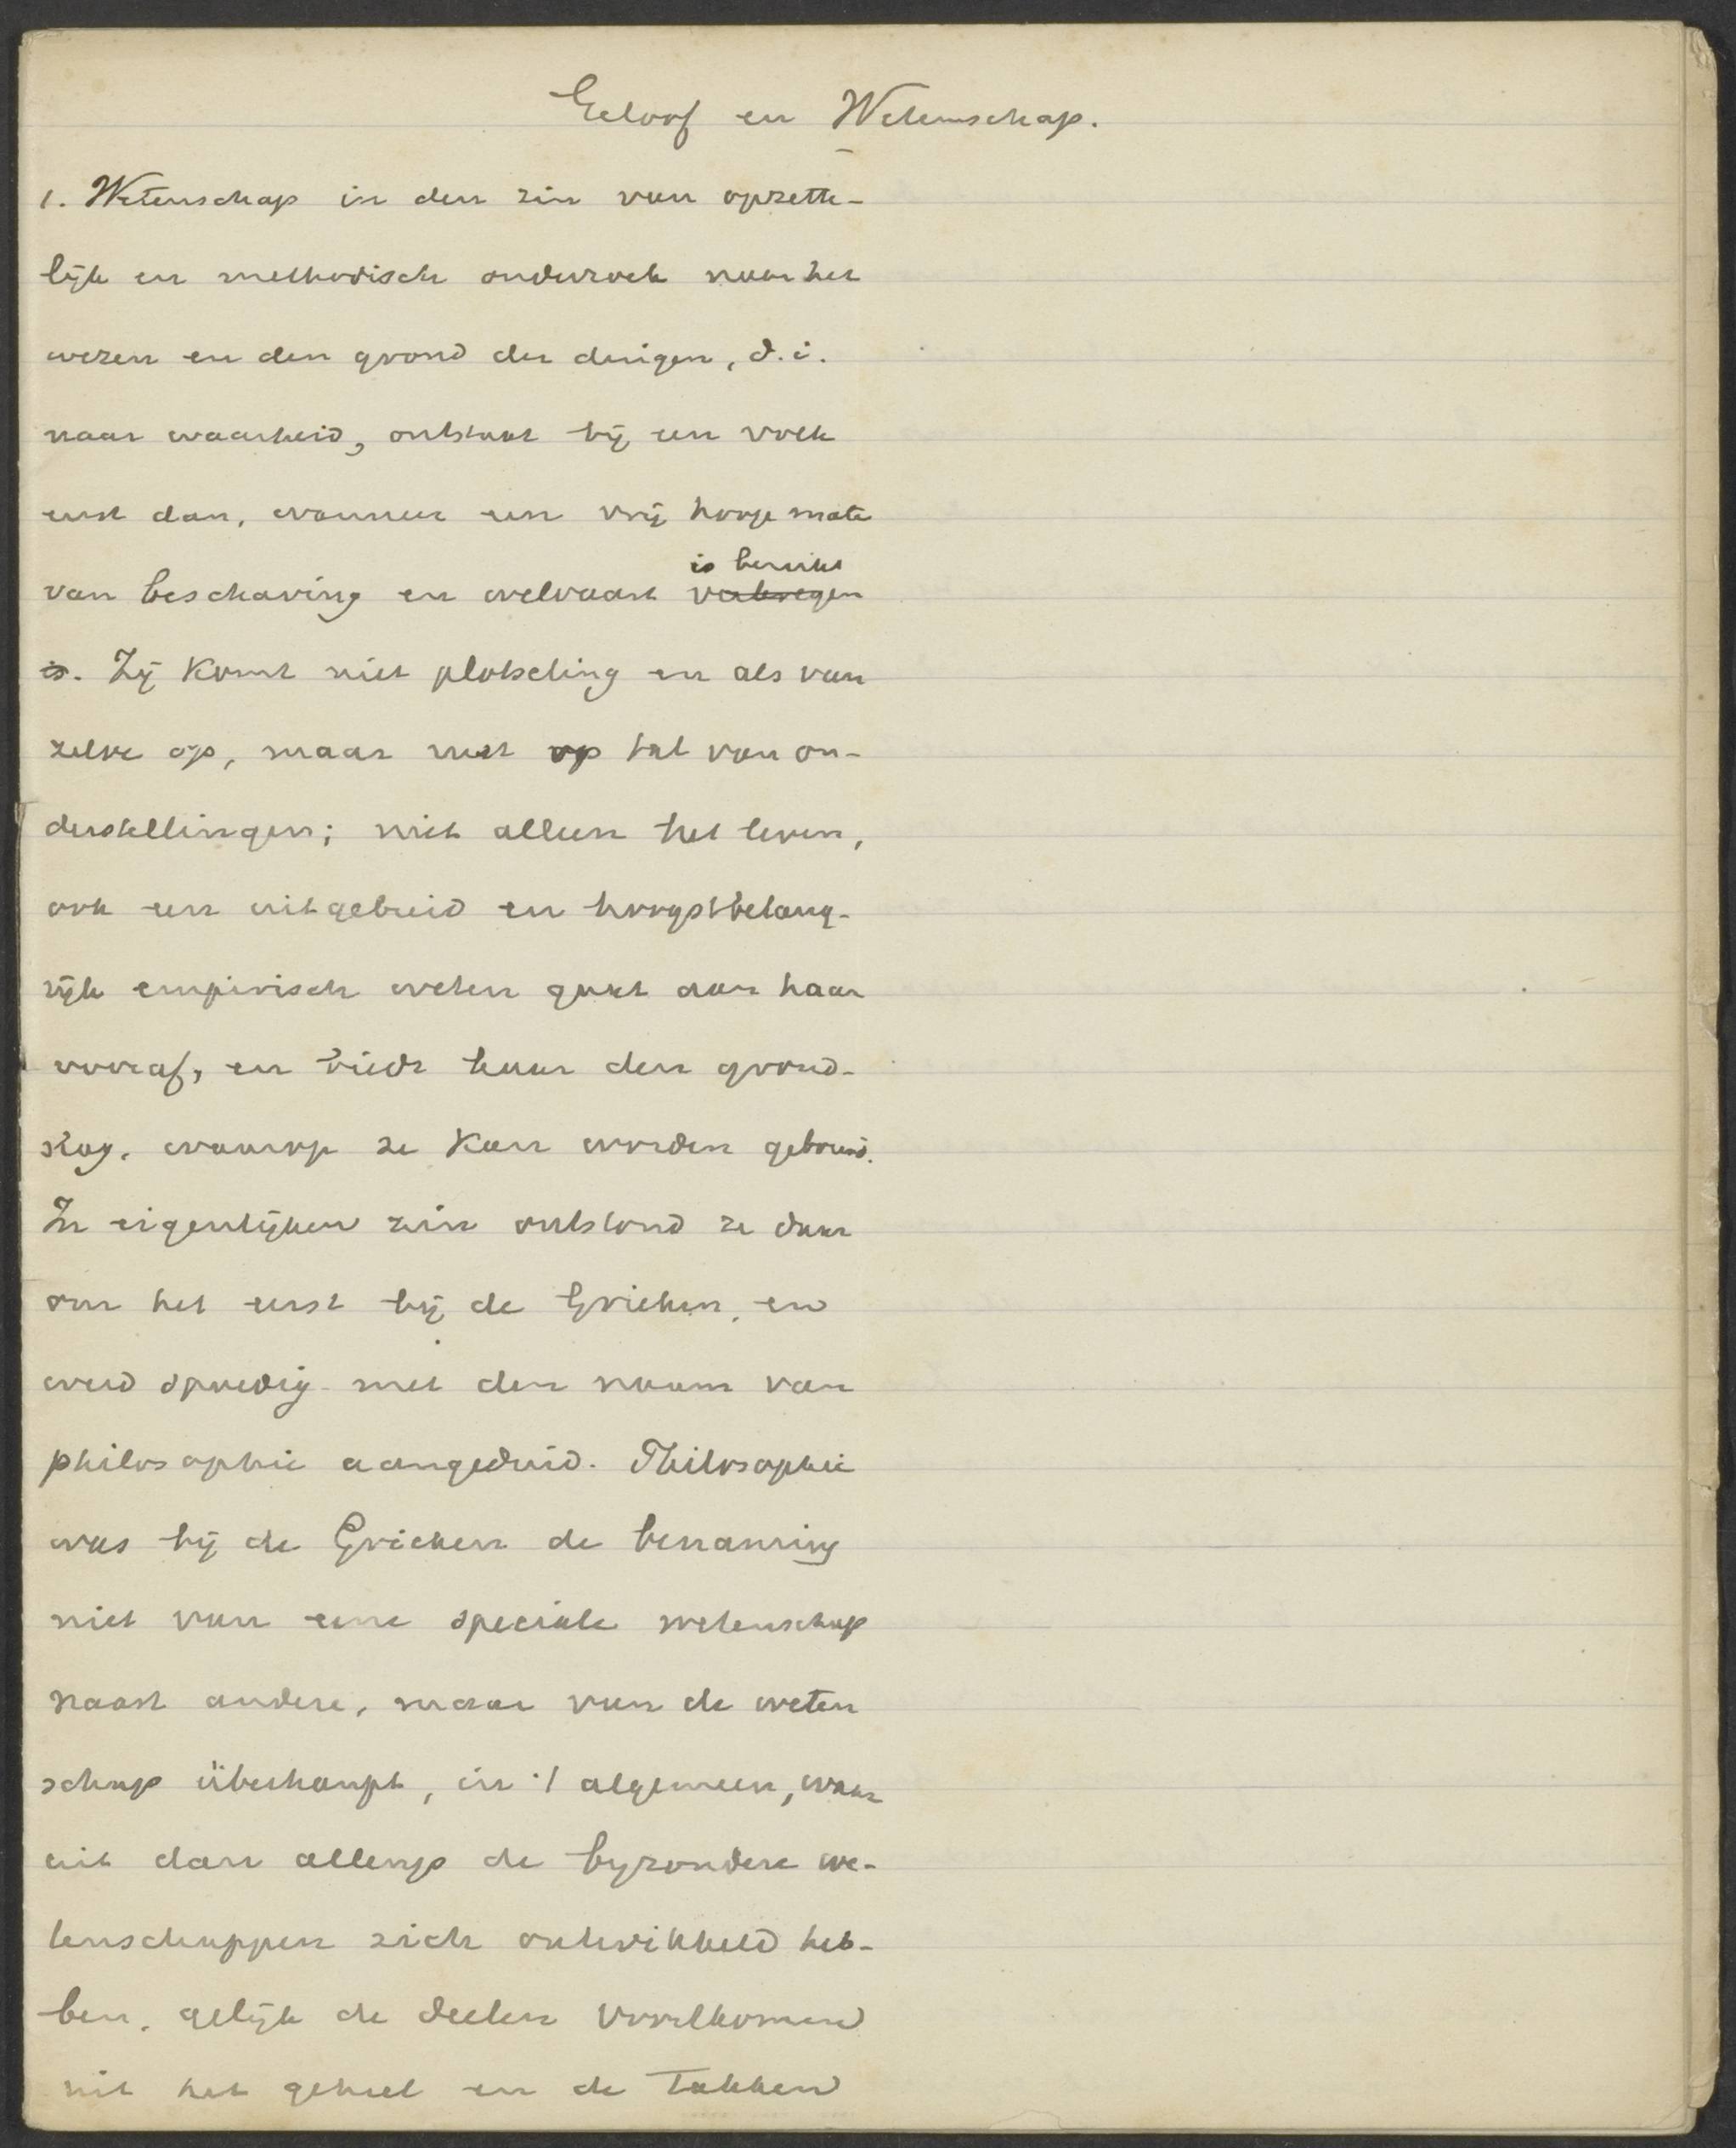 Geloof en Wetenschap.
1. Wetenschap in den zin van opzette-
lijk en methodisch onderzoek naar het
wezen en den grond der dingen, d.i.
naar waarheid, ontstaat bij een volk
eerst dan, wanneer een vrij hooge mate
is bereikt
van beschaving en welvaart verkregen
is. Zij komt niet plotseling en als van
zelve op, maar rust op tal van on-
derstellingen; niet alleen het leven,
ook een uitgebreid en hoogstbelang-
rijk empirisch weten gaat aan haar
vooraf, en biedt haar den grond-
slag, waarop ze kan worden gebouwd.
In eigenlijken zin ontstond ze daar
om het eerst bij de Grieken, en
werd spoedig met den naam van
philosophie aangeduid. Philosophie
was bij de Grieken de benaming
niet van eene speciale wetenschap
naast andere, maar van de weten
schap überhaupt, in 't algemeen, waar
uit dan allengs de byzondere we-
tenschappen zich ontwikkeld heb-
ben, gelijk de deelen voortkomen
uit het geheel en de takken